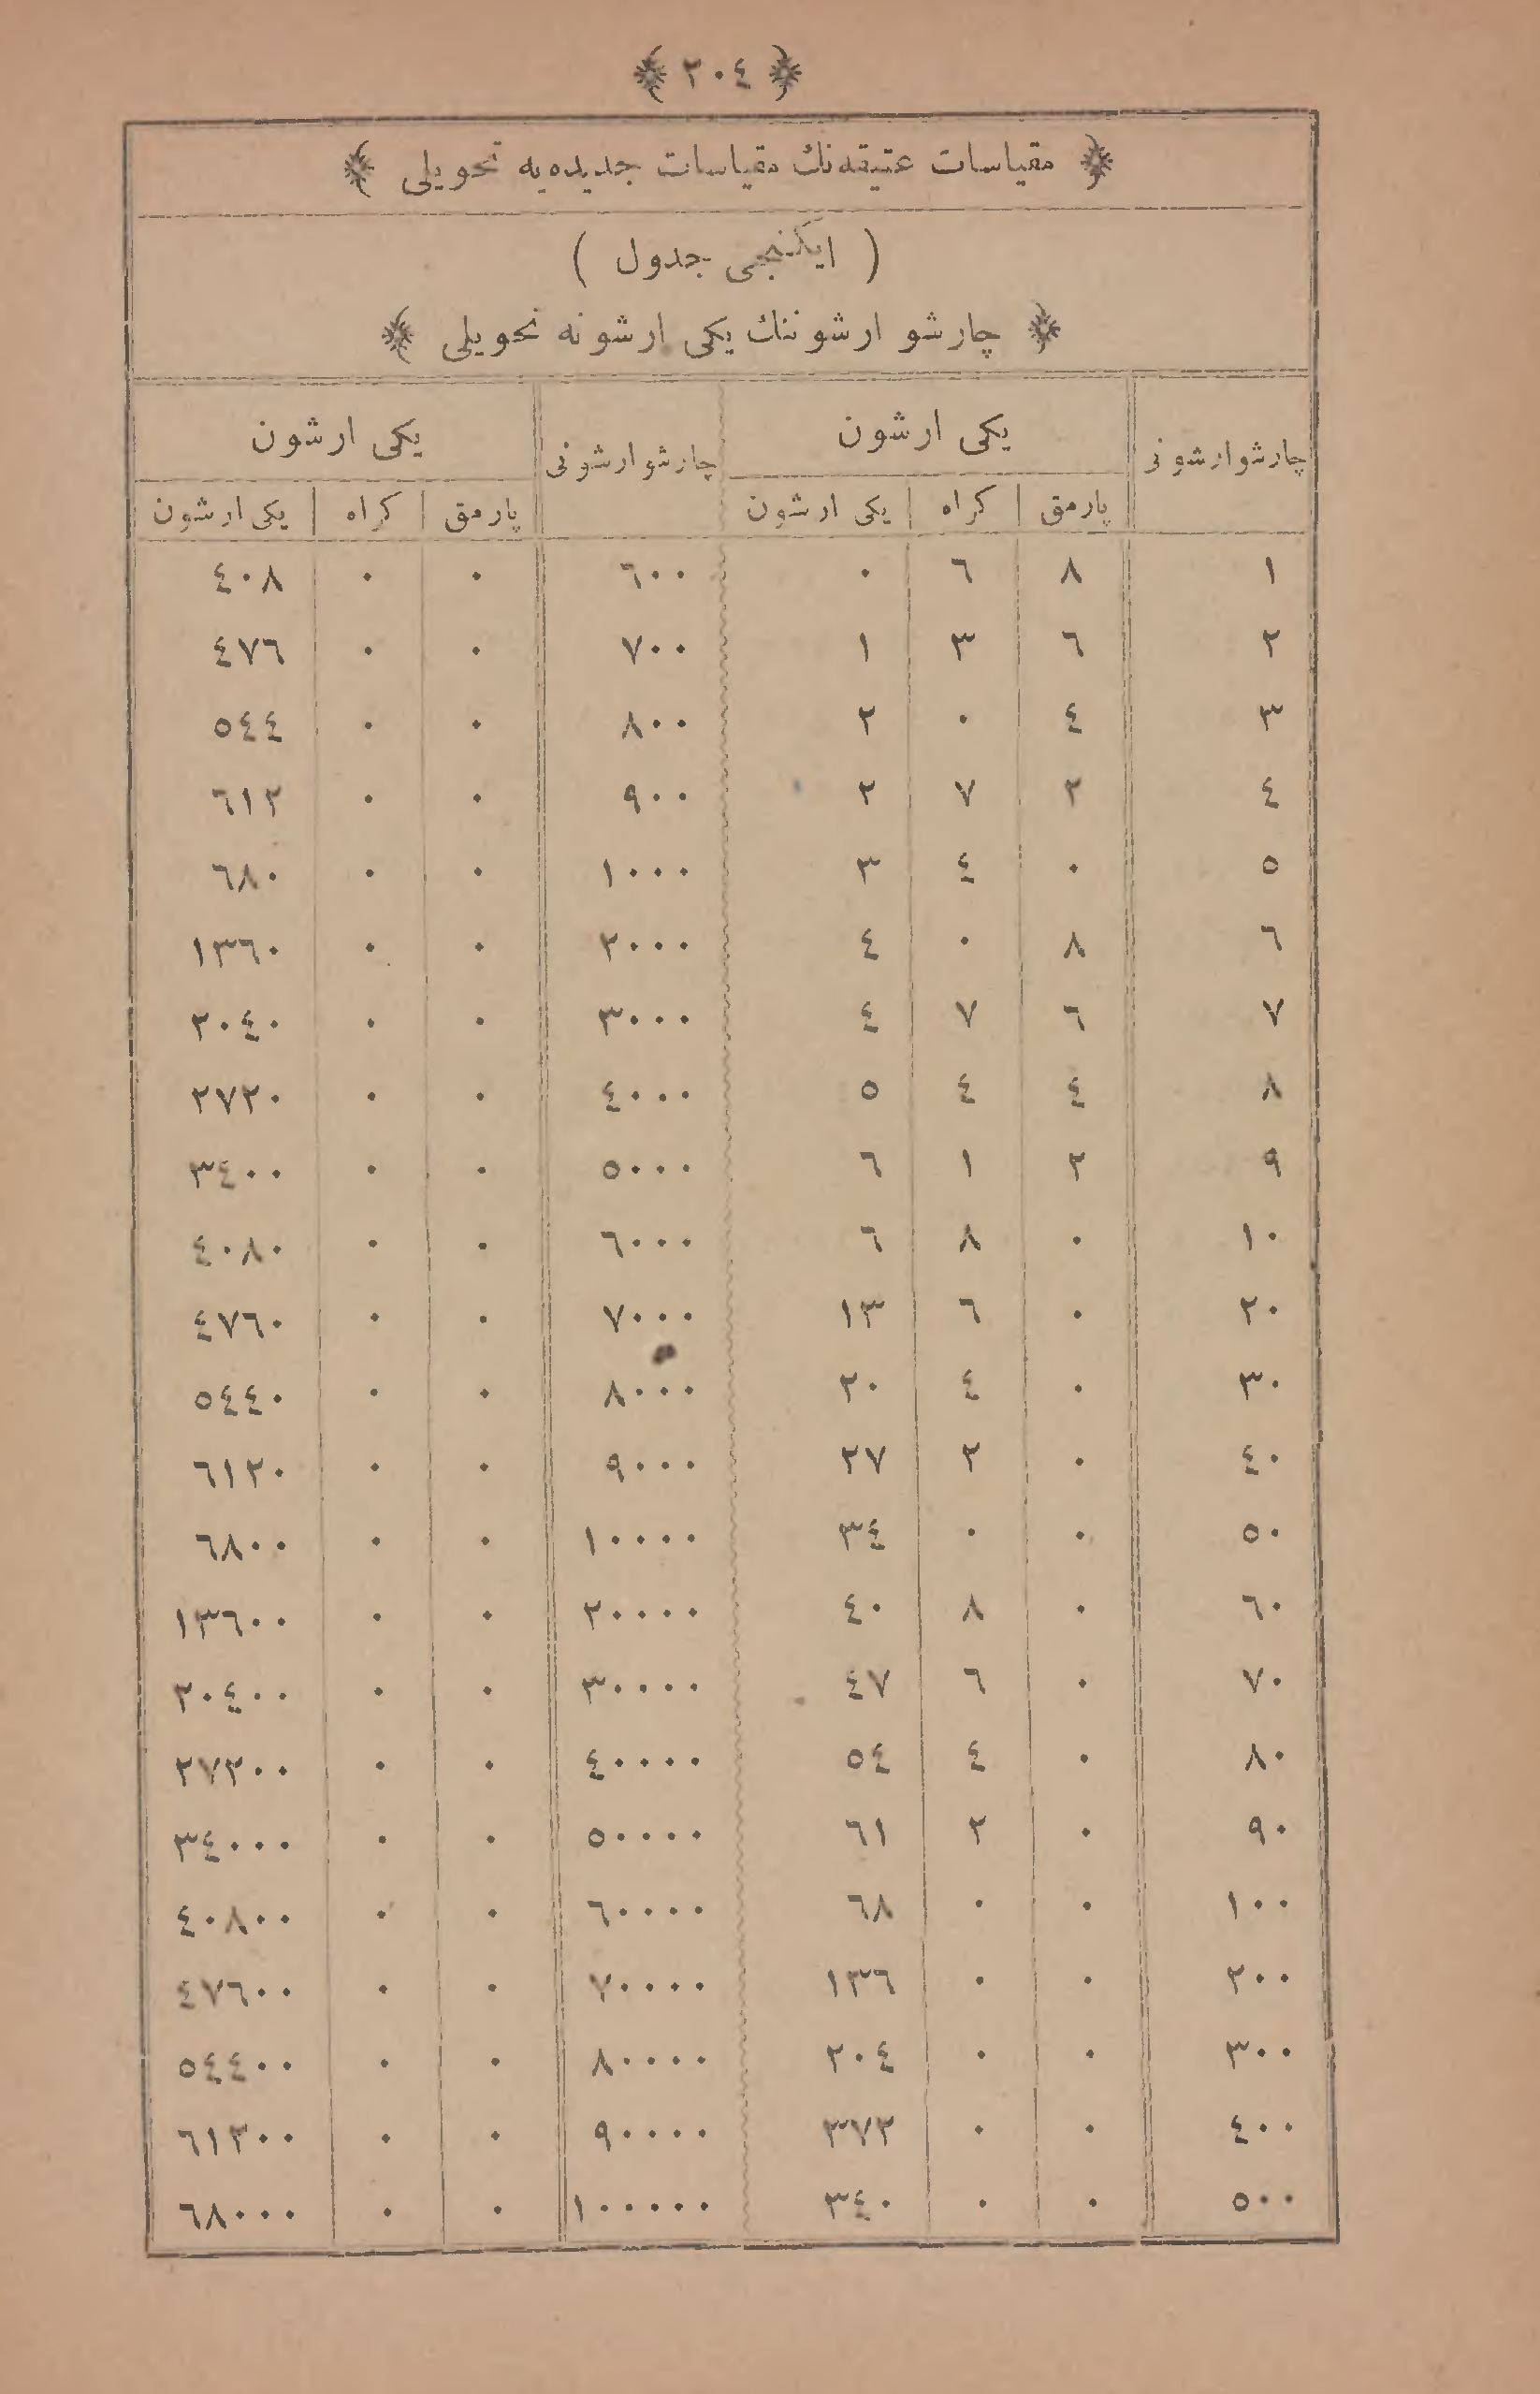 ﴿ ٢٠٤ ﴾
﴿ مقیاسات عتیقه‌نك مقیاسات جدیده‌یه تحویلی ﴾
( ایكنجی جدول )
﴿ چارشو ارشوننك یكی ارشونه تحویلی ﴾
چارشو ارشونی یكی ارشون چارشو ارشونی یكی ارشون
پارمق كراه یكی ارشون پارمق كراه یكی ارشون
١ ٨ ٦ ٠ ٦٠٠ ٠ ٠ ٤٠٨
٢ ٦ ٣ ١ ٧٠٠ ٠ ٠ ٤٧٦
٣ ٤ ٠ ٢ ٨٠٠ ٠ ٠ ٥٤٤
٤ ٢ ٧ ٢ ٩٠٠ ٠ ٠ ٦١٢
٥ ٠ ٤ ٣ ١٠٠٠ ٠ ٠ ٦٨٠
٦ ٨ ٠ ٤ ٢٠٠٠ ٠ ٠ ١٣٦٠
٧ ٦ ٧ ٤ ٣٠٠٠ ٠ ٠ ٢٠٤٠
٨ ٤ ٤ ٥ ٤٠٠٠ ٠ ٠ ٢٧٢٠
٩ ٢ ١ ٦ ٥٠٠٠ ٠ ٠ ٣٤٠٠
١٠ ٠ ٨ ٦ ٦٠٠٠ ٠ ٠ ٤٠٨٠
٢٠ ٠ ٦ ١٣ ٧٠٠٠ ٠ ٠ ٤٧٦٠
٣٠ ٠ ٤ ٢٠ ٨٠٠٠ ٠ ٠ ٥٤٤٠
٤٠ ٠ ٢ ٢٧ ٩٠٠٠ ٠ ٠ ٦١٢٠
٥٠ ٠ ٠ ٣٤ ١٠٠٠٠ ٠ ٠ ٦٨٠٠
٦٠ ٠ ٨ ٤٠ ٢٠٠٠٠ ٠ ٠ ١٣٦٠٠
٧٠ ٠ ٦ ٤٧ ٣٠٠٠٠ ٠ ٠ ٢٠٤٠٠
٨٠ ٠ ٤ ٥٤ ٤٠٠٠٠ ٠ ٠ ٢٧٢٠٠
٩٠ ٠ ٢ ٦١ ٥٠٠٠٠ ٠ ٠ ٣٤٠٠٠
١٠٠ ٠ ٠ ٦٨ ٦٠٠٠٠ ٠ ٠ ٤٠٨٠٠
٢٠٠ ٠ ٠ ١٣٦ ٧٠٠٠٠ ٠ ٠ ٤٧٦٠٠
٣٠٠ ٠ ٠ ٢٠٤ ٨٠٠٠٠ ٠ ٠ ٥٤٤٠٠
٤٠٠ ٠ ٠ ٣٧٢ ٩٠٠٠٠ ٠ ٠ ٦١٢٠٠
٥٠٠ ٠ ٠ ٣٤٠ ١٠٠٠٠٠ ٠ ٠ ٦٨٠٠٠